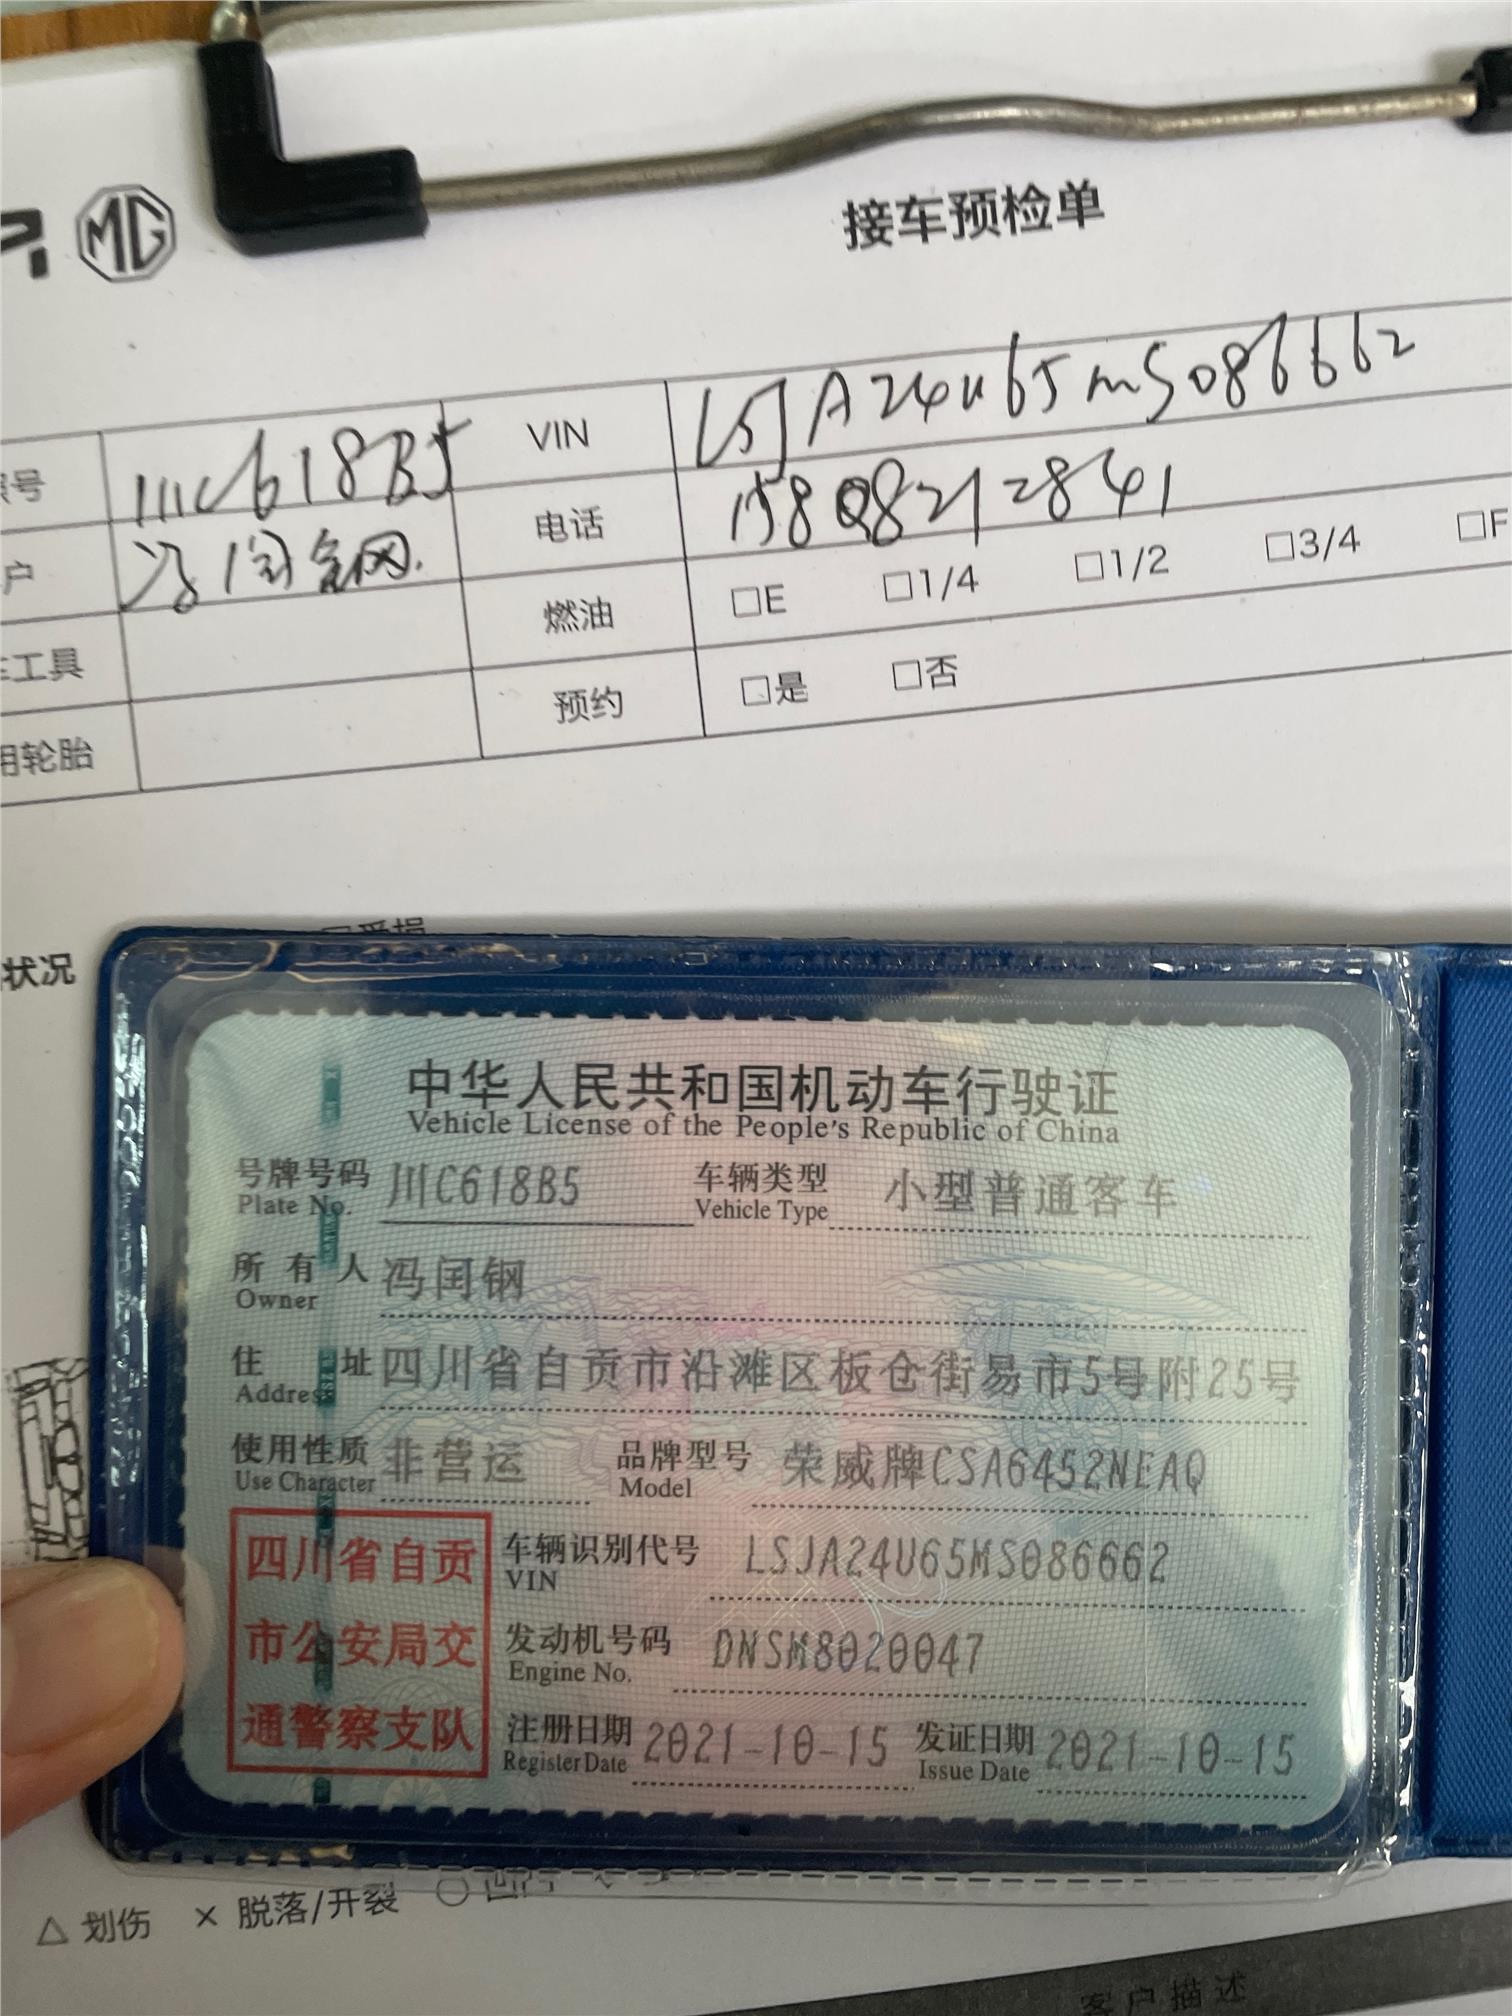 MG
接车预检单
号 川C618B5 VIN LSJA24U65MS086662
户 冯闰钢 电话 15808212841
燃油 □E □1/4 □1/2 □3/4 □F
工具 预约 □是 □否
用轮胎
状况
中华人民共和国机动车行驶证
Vehicle License of the People's Republic of China
号牌号码 川C618B5 车辆类型 小型普通客车
Plate No. Vehicle Type
所有人 冯闰钢
Owner
住址 四川省自贡市沿滩区板仓街易市5号附25号
Address
使用性质 非营运 品牌型号 荣威牌CSA6452NEAQ
Use Character Model
四川省自贡 车辆识别代号 LSJA24U65MS086662
VIN
市公安局交 发动机号码 DNSM8020047
Engine No.
通警察支队 注册日期 2021-10-15 发证日期 2021-10-15
Register Date Issue Date
△ 划伤 × 脱落/开裂 ○
客户描述